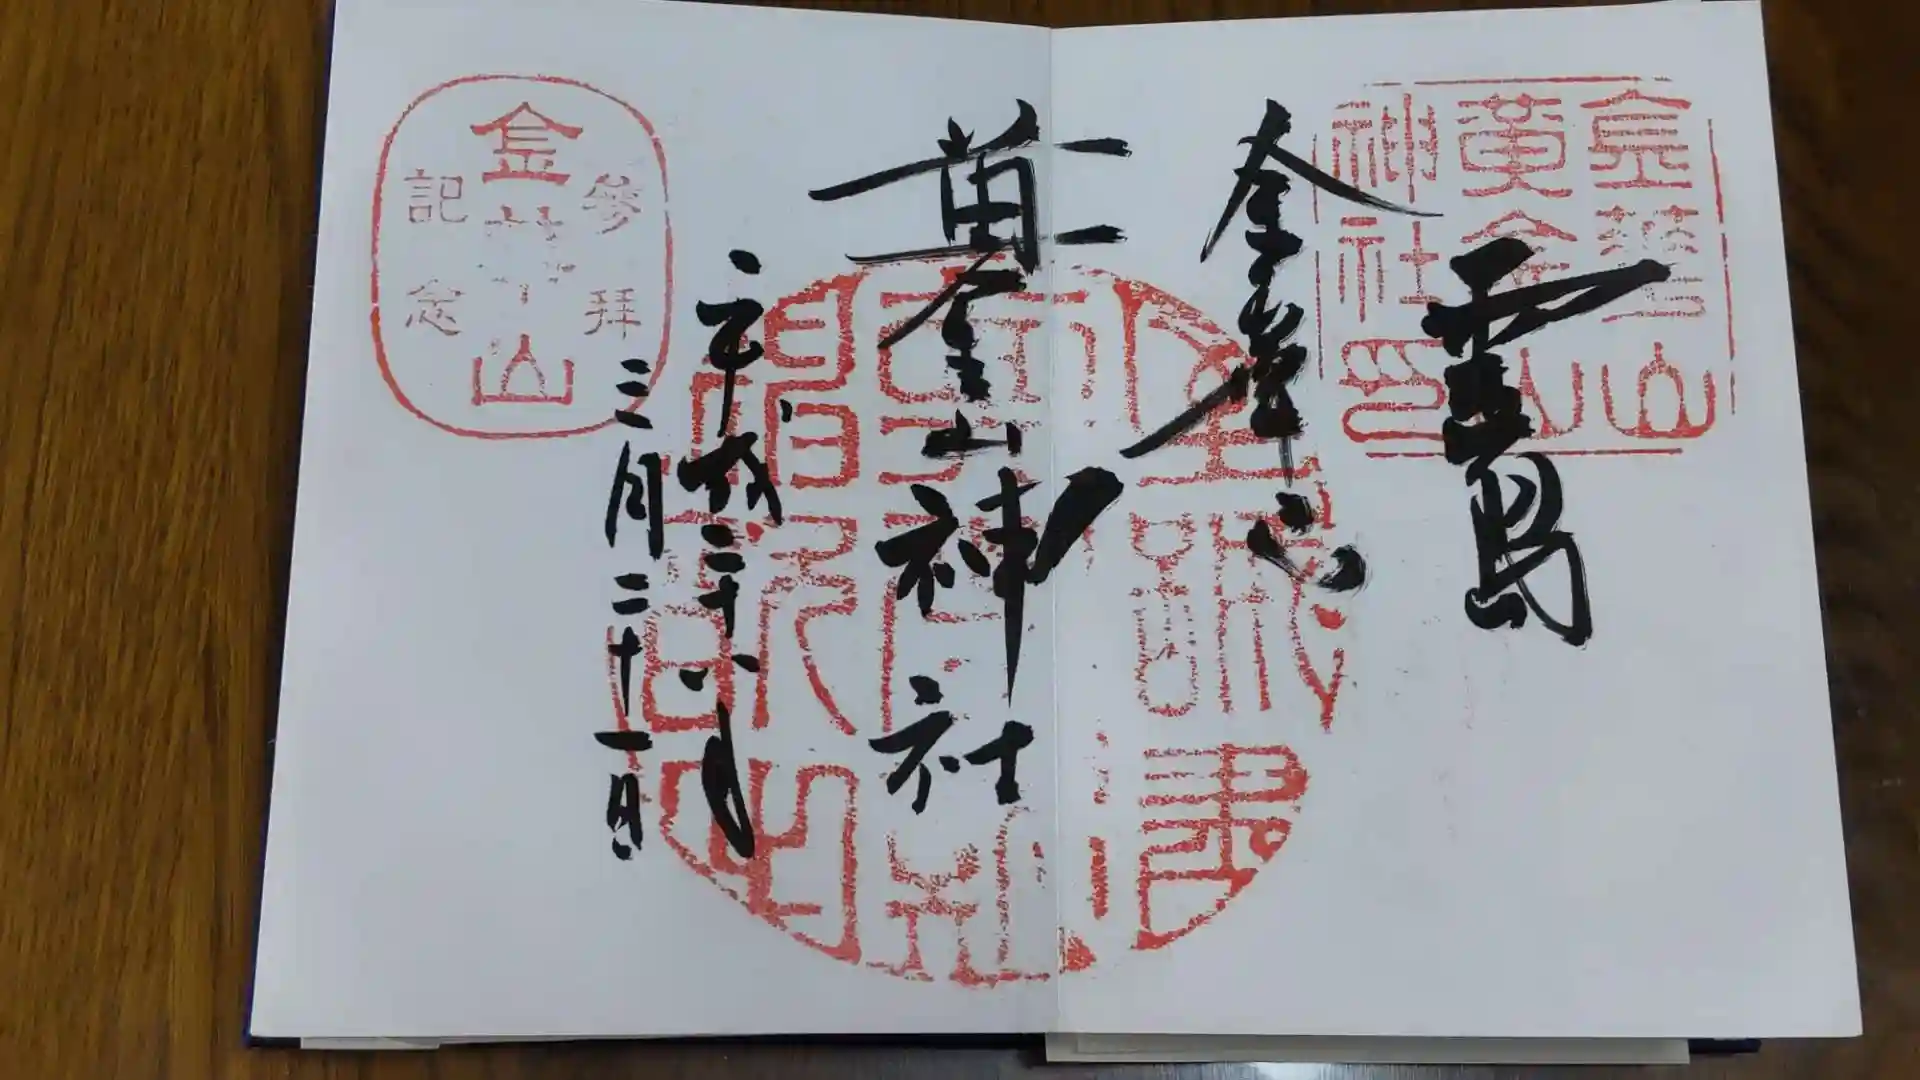 霊島
金華山
黄金山神社
平成二十八年
三月二十一日
金華山
黄金山
神社印
參拜
金華山
記念